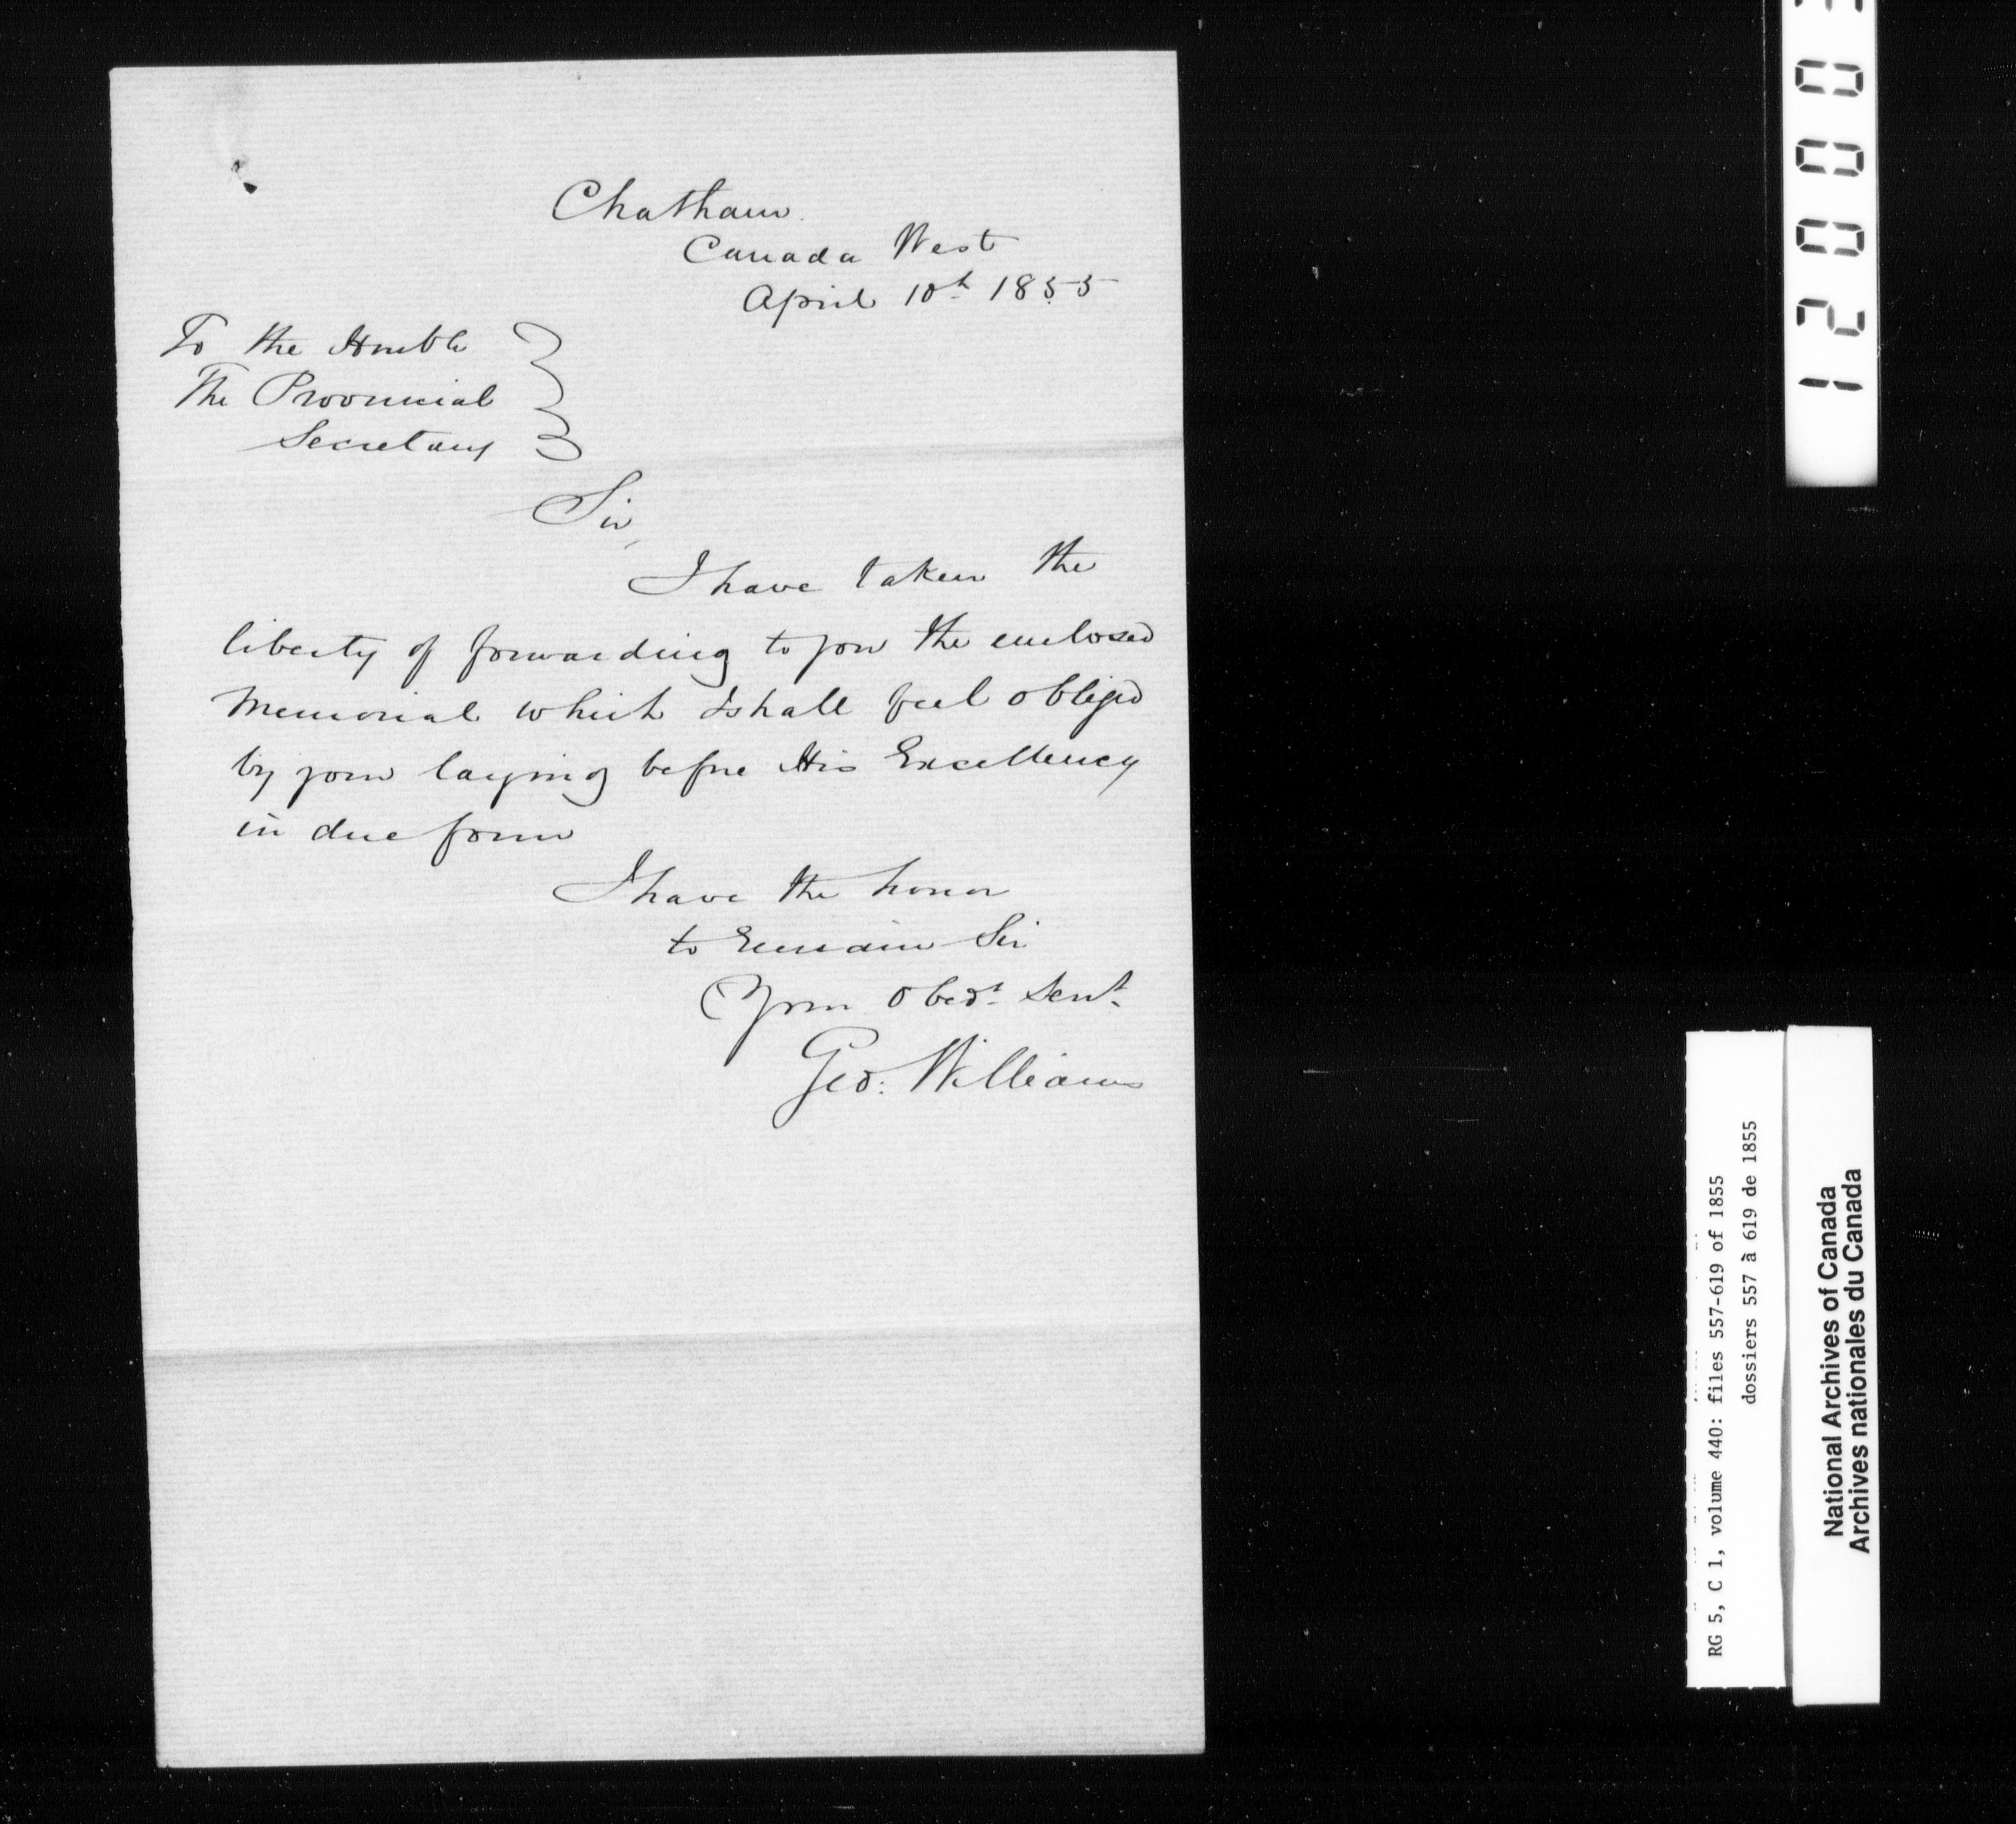 Chatham.
Canada West
April 10th 1855
To the Honble
The Provincial
Secretary
Sir,
I have taken the
liberty of forwarding to you the enclosed
Memorial which I shall feel obliged
by your laying before His Excellency
in due form
I have the honor
to remain Sir
Your Obedt. Servt.
Geo: Williams
RG 5, C 1, volume 440: files 557-619 of 1855
dossiers 557 à 619 de 1855
National Archives of Canada
Archives nationales du Canada